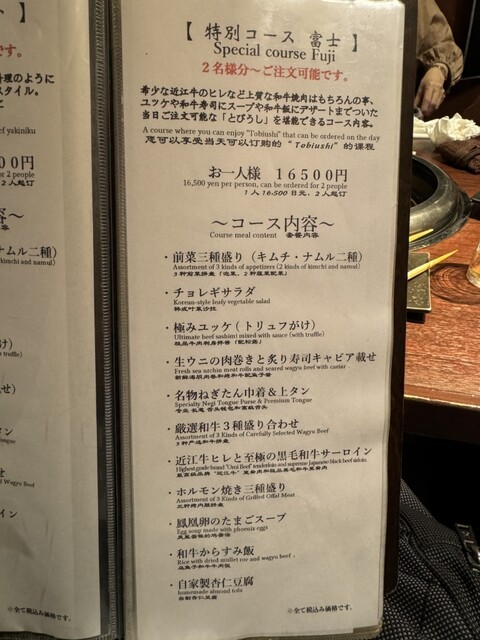 【 特別コース 富士 】
Special course Fuji
2名様分～ご注文可能です。
希少な近江牛のヒレなど上質な和牛焼肉はもちろんの事、
ユッケや和牛寿司にスープや和牛飯にデザートまでついた
当日ご注文可能な「とびうし」を堪能できるコース内容。
A course where you can enjoy "Tobiushi" that can be ordered on the day
您可以享受当天可以订购的 “Tobiushi” 的课程
お一人様 16500円
16,500 yen per person, can be ordered for 2 people
1人 16,500 日元, 2人起订
～コース内容～
Course meal content 套餐内容
・前菜三種盛り（キムチ・ナムル二種）
Assortment of 3 kinds of appetizers (2 kinds of kimchi and namul)
・チョレギサラダ
Korean-style leafy vegetable salad
韩式叶菜沙拉
・極みユッケ（トリュフがけ）
Ultimate beef sashimi mixed with sauce (with truffle)
・生ウニの肉巻きと炙り寿司キャビア載せ
Fresh sea urchin meat rolls and seared wagyu beef with caviar
・名物ねぎたん巾着＆上タン
Specialty Negi Tongue Purse & Premium Tongue
・厳選和牛３種盛り合わせ
Assortment of 3 Kinds of Carefully Selected Wagyu Beef
・近江牛ヒレと至極の黒毛和牛サーロイン
・ホルモン焼き三種盛り
Assortment of 3 Kinds of Grilled Offal Meat
三种烤内脏拼盘
・鳳凰卵のたまごスープ
Egg soup made with phoenix eggs
・和牛からすみ飯
Rice with dried mullet roe and wagyu beef
・自家製杏仁豆腐
homemade almond tofu
自制杏仁豆腐
※全て税込み価格です。